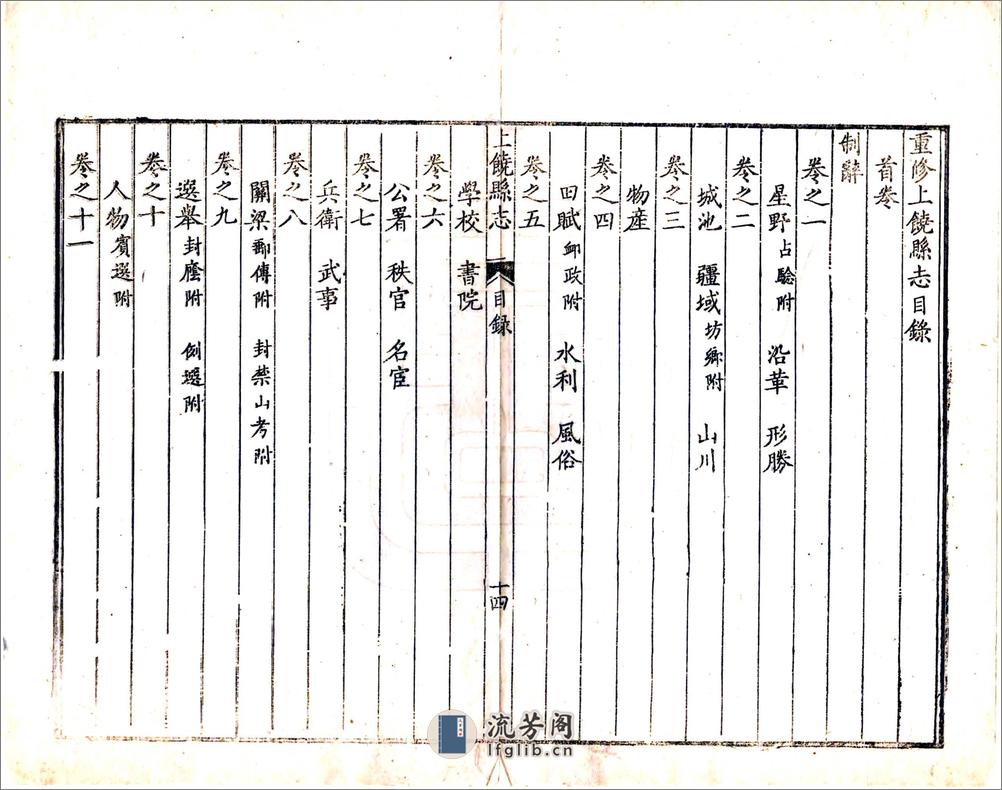 重修上饒縣志目錄
首卷
制辭
卷之一
星野占驗附 沿革 形勝
卷之二
城池 疆域坊鄉附 山川
卷之三
物産
卷之四
田賦郵政附 水利 風俗
卷之五
上饒縣志 目錄 十四
學校 書院
卷之六
公署 秩官 名宦
卷之七
兵衛 武事
卷之八
關梁郵傳附 封禁山考附
卷之九
選舉封廕附 例選附
卷之十
人物賓選附
卷之十一
流芳阁
lfglib.cn